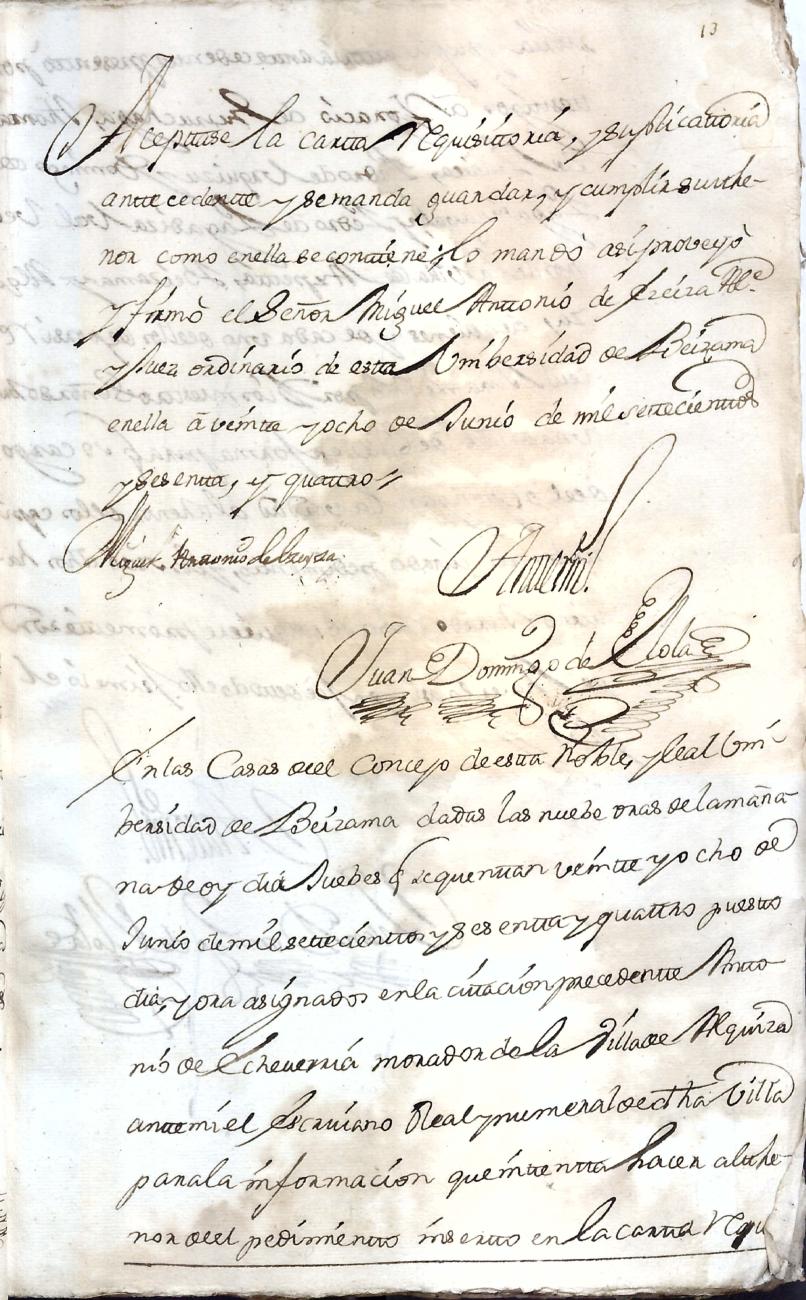 13
Aceptase la cartta requisittoria, y suplicattoria
antteçedentte y se manda guardar, y cumplir su the-
nor como en ella se conttiene; lo mandò asi proveyò
y firmò el Señor Miguel Anttonio de Ezeiza Alc.e
y Juez ordinario de estta Unibersidad de Beizama
en ella â veintte y ocho de Junio de mil settecienttos
y sesentta, y quattro //
Miguel Anttonio de Ezeyza
Antte mi.
Juan Domingo de Olola
En las Casas del Concejo de estta Noble, y leal Uni-
bersidad de Beizama dadas las nuebe oras de la maña-
na de oy dia Juebes q se quenttan veintte y ocho de
Junio de mil settecienttos y sesentta y quattro puestto
dia, y ora asignados en la cittacion precedentte Antto-
nio de Echeverria morador de la Villa de Alquiza
antte mi el Escrivano Real y numeral de dtha Villa
para la informacion que inttentta hacer al the-
nor del pedimientto insertto en la cartta requi